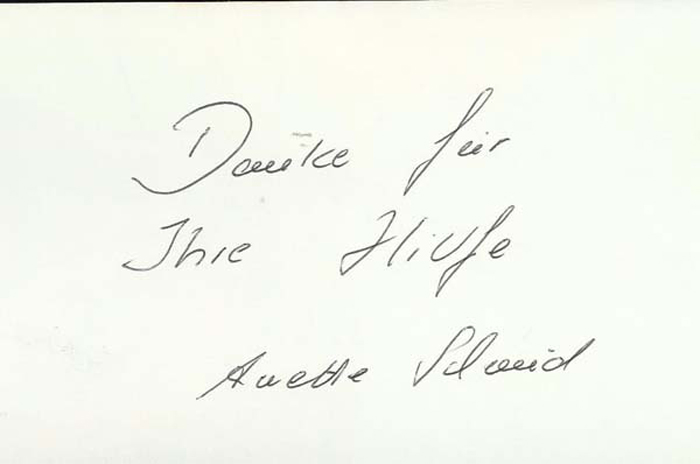 Danke für
Ihre Hilfe
Anette Schmid